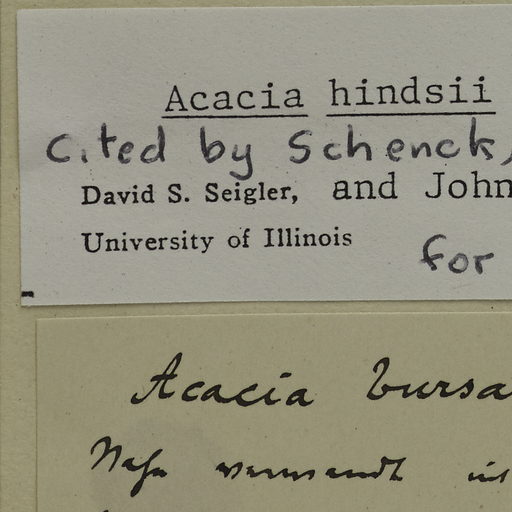 Acacia hindsii
Cited by Schenck,
David S. Seigler, and John
University of Illinois
for
Acacia bursa